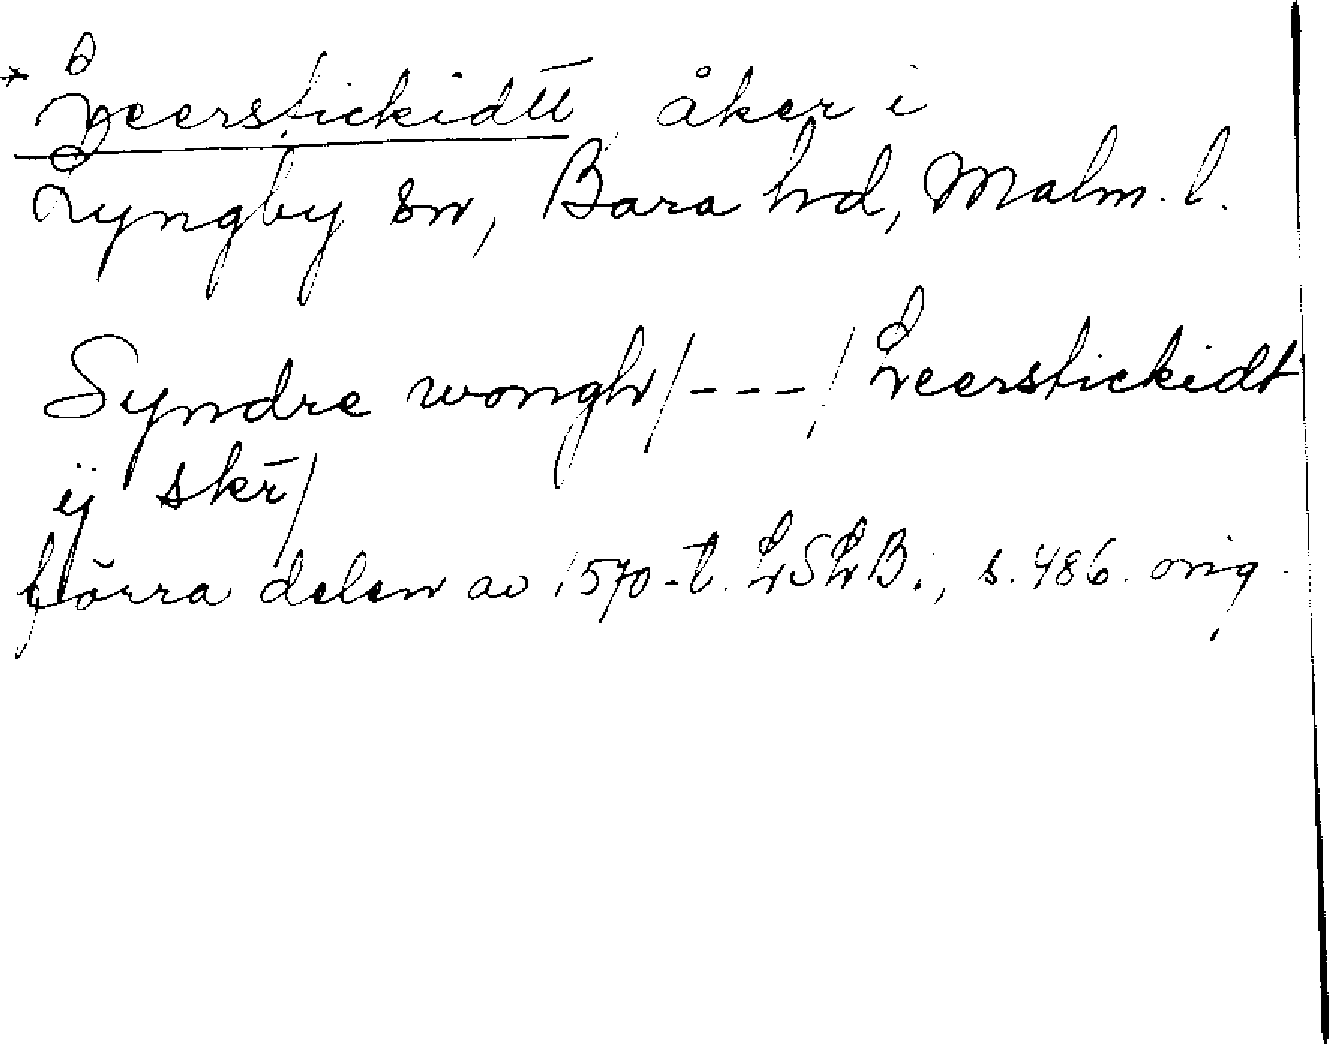 * Leerstickidtt åker i
Lyngby sn, Bara hd, Malm. l.
Syndre wongh/---/Leerstickidt
ij skr/
förra delen av 1570-t. LSLB., s. 486. orig.